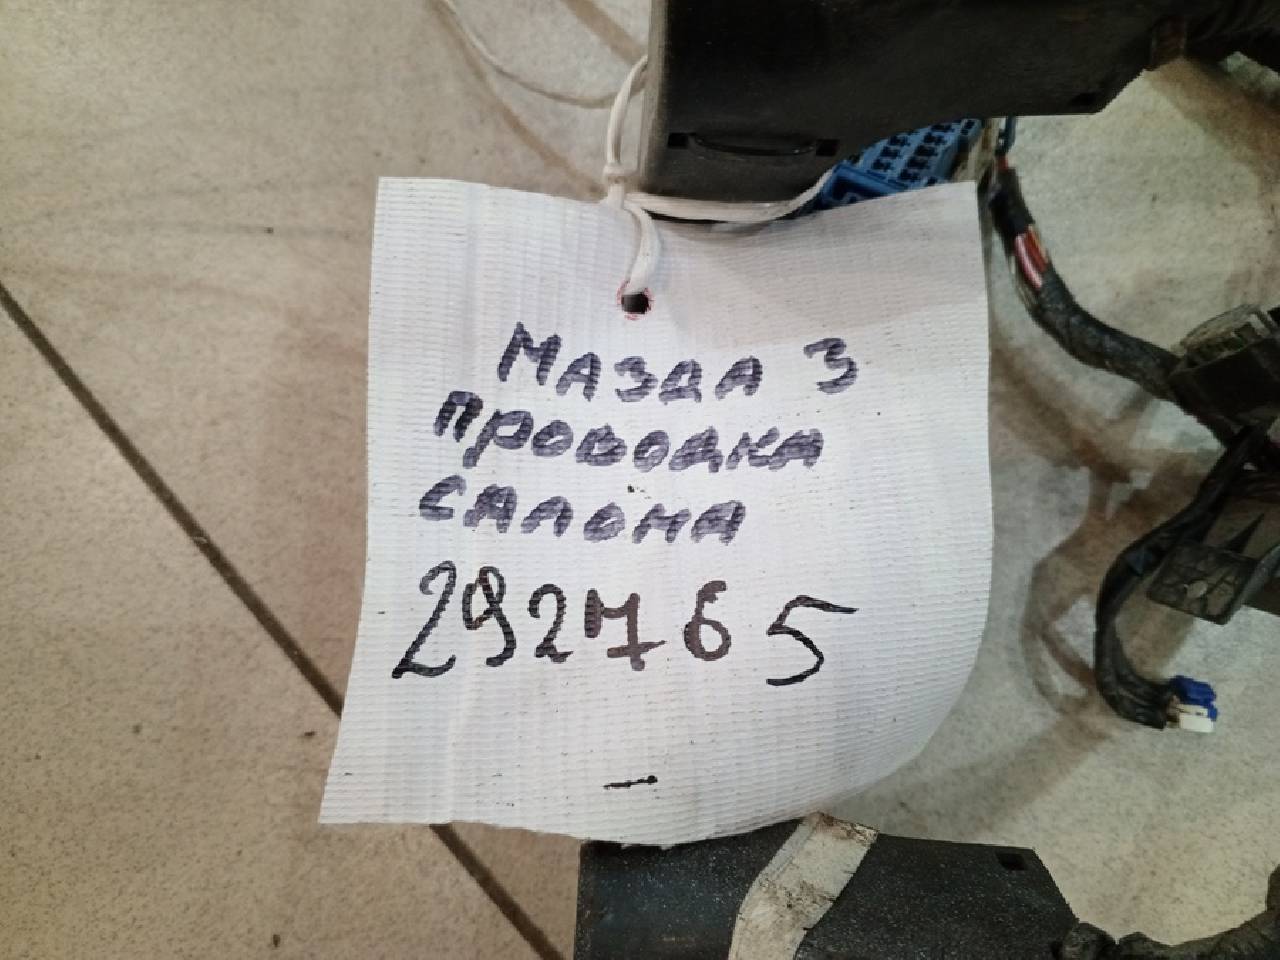 МАЗДА 3
ПРОВОДКА
САЛОНА
292765